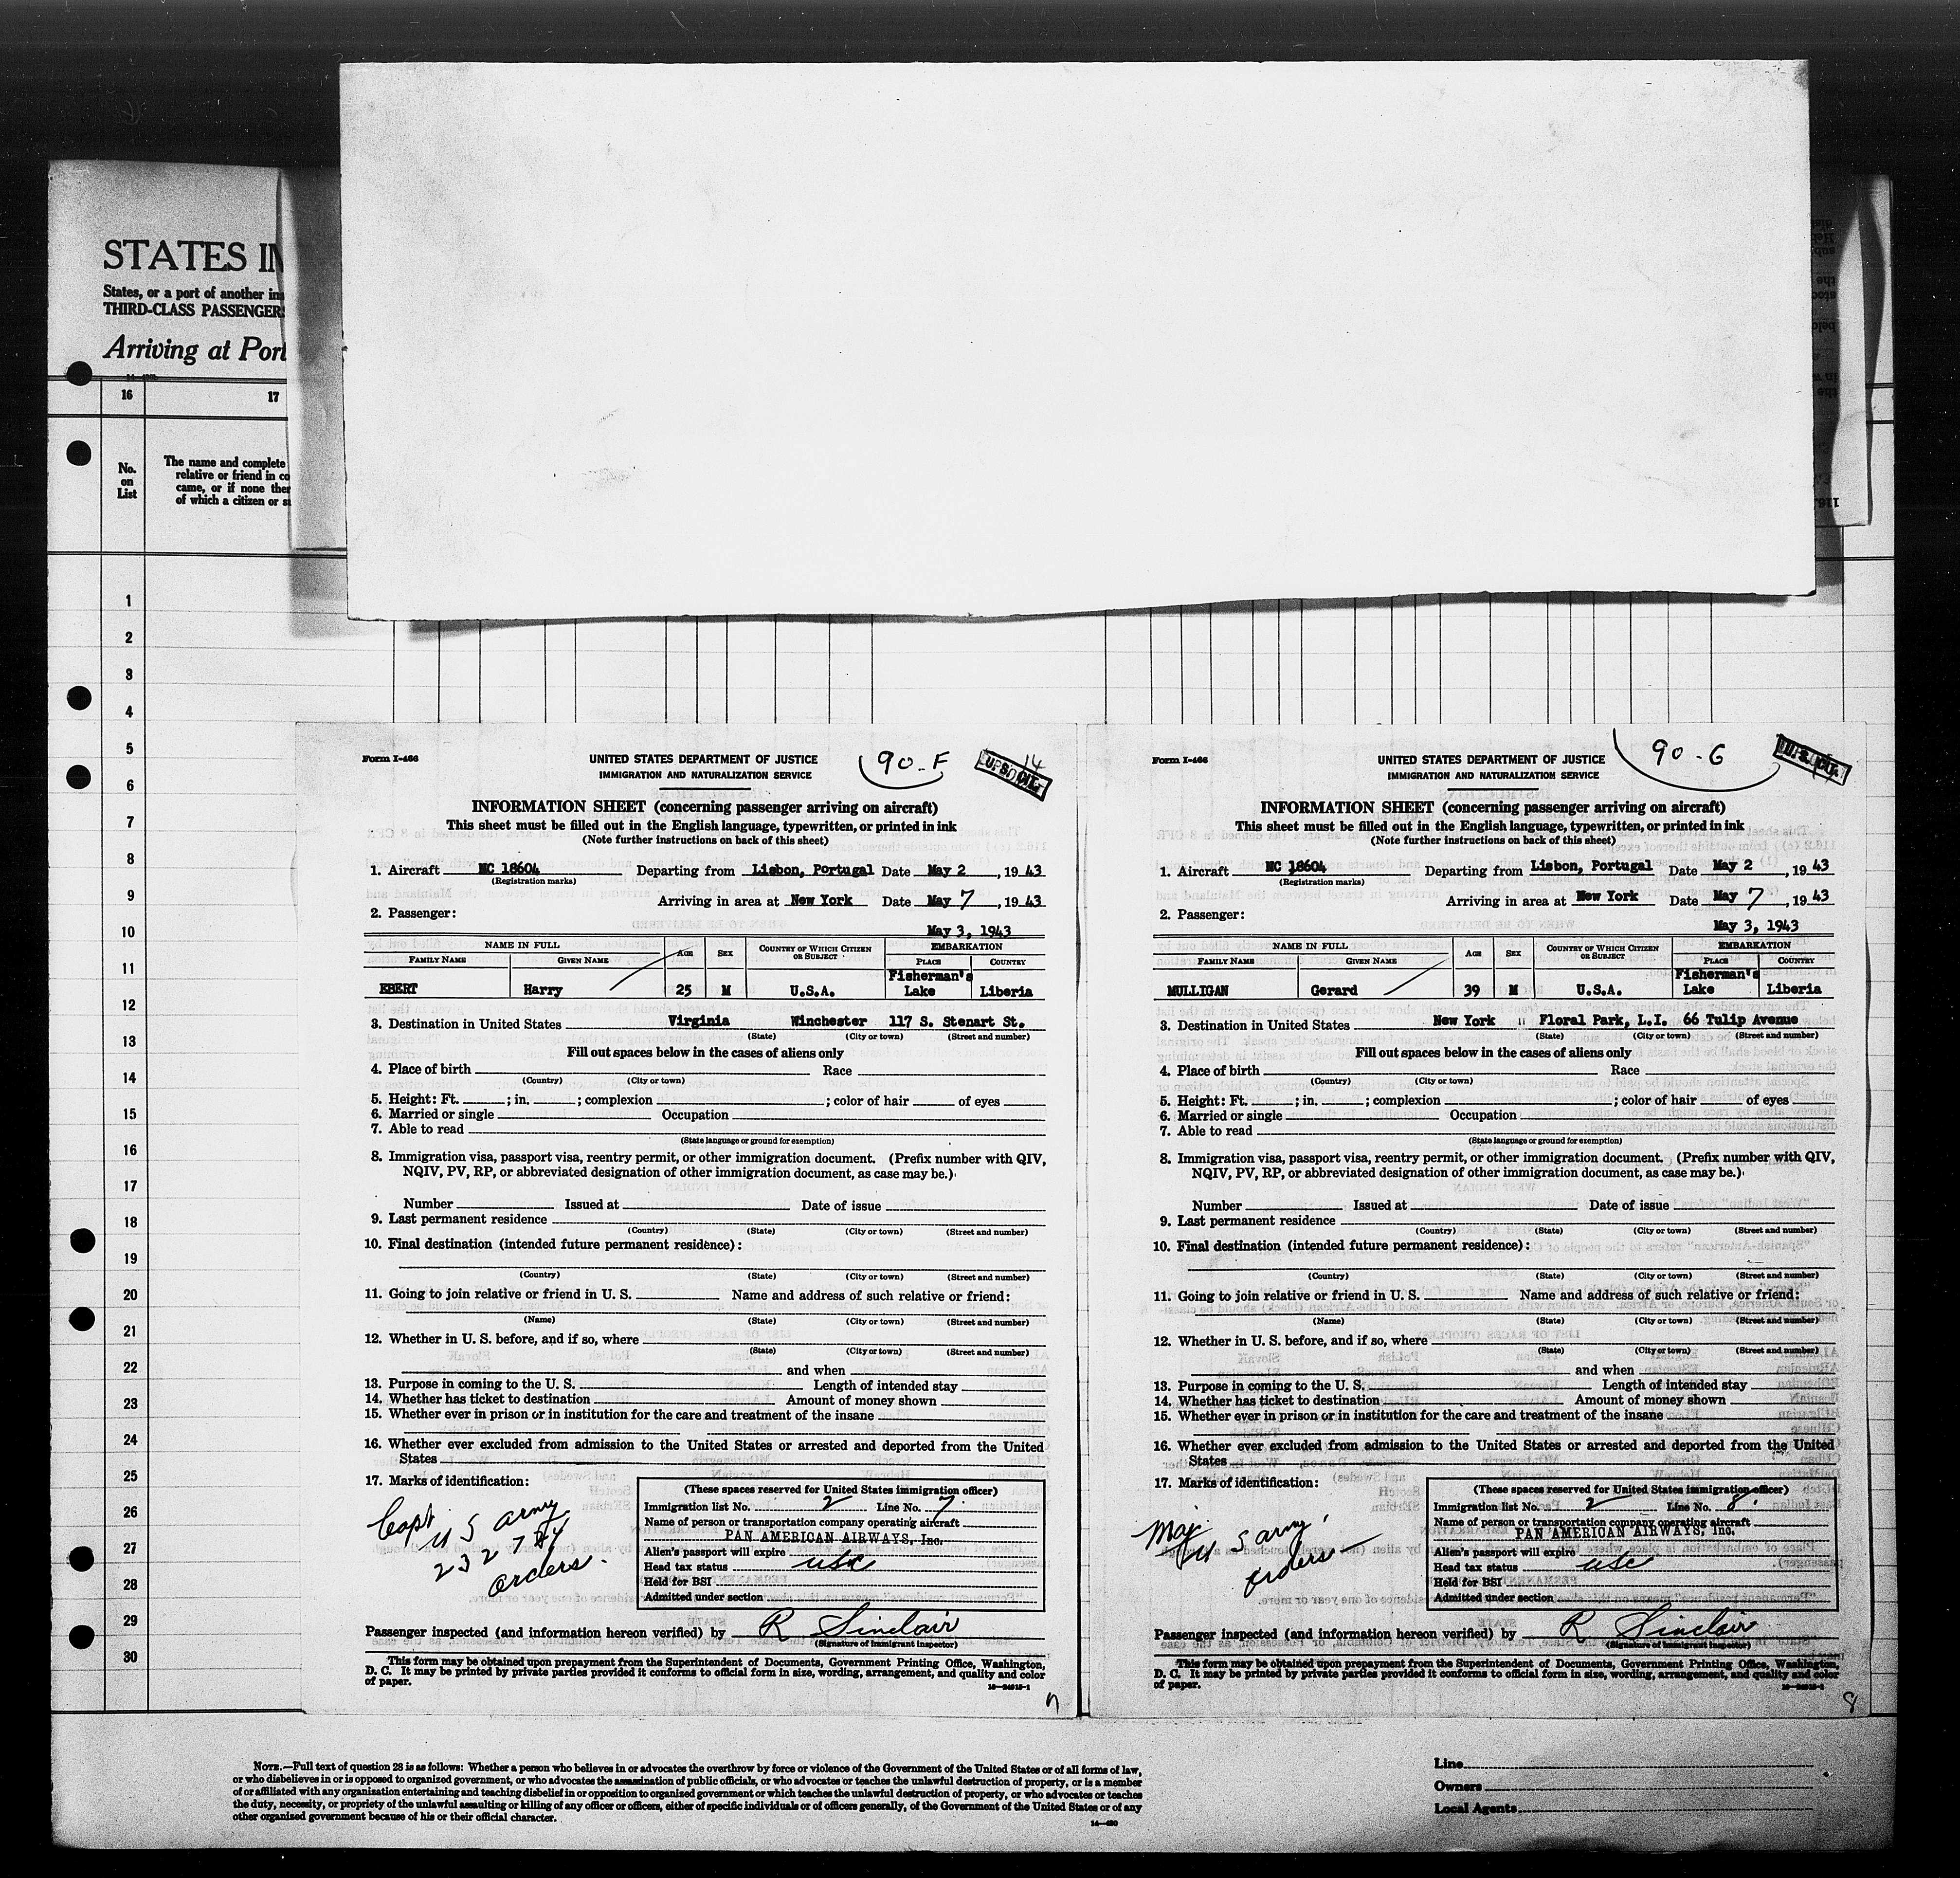 STATES IN
States, or a port of another in
THIRD-CLASS PASSENGERS
Arriving at Port
16 17
No. on List
The name and complete
relative or friend in co
came, or if none ther
of which a citizen or s
1
2
3
4
5
6
7
8
9
10
11
12
13
14
15
16
17
18
19
20
21
22
23
24
25
26
27
28
29
30
Form I-466
UNITED STATES DEPARTMENT OF JUSTICE
IMMIGRATION AND NATURALIZATION SERVICE
90-F
INFORMATION SHEET (concerning passenger arriving on aircraft)
This sheet must be filled out in the English language, typewritten, or printed in ink
(Note further instructions on back of this sheet)
1. Aircraft NC 18604 Departing from Lisbon, Portugal Date May 2, 1943
(Registration marks)
Arriving in area at New York Date May 7, 1943
2. Passenger:
May 3, 1943
NAME IN FULL AGE SEX COUNTRY OF WHICH CITIZEN OR SUBJECT EMBARKATION
FAMILY NAME GIVEN NAME PLACE COUNTRY
EBERT Harry 25 M U.S.A. Fisherman's Lake Liberia
3. Destination in United States Virginia Winchester 117 S. Stenart St.
(State) (City or town) (Street and number)
Fill out spaces below in the cases of aliens only
4. Place of birth Race
(Country) (City or town)
5. Height: Ft. ; in. ; complexion ; color of hair of eyes
6. Married or single Occupation
7. Able to read
(State language or ground for exemption)
8. Immigration visa, passport visa, reentry permit, or other immigration document. (Prefix number with QIV,
NQIV, PV, RP, or abbreviated designation of other immigration document, as case may be.)
Number Issued at Date of issue
9. Last permanent residence
(Country) (State) (City or town) (Street and number)
10. Final destination (intended future permanent residence):
(Country) (State) (City or town) (Street and number)
11. Going to join relative or friend in U. S. Name and address of such relative or friend:
(Name) (State) (City or town) (Street and number)
12. Whether in U. S. before, and if so, where
(State) (City or town) (Street and number)
and when
13. Purpose in coming to the U. S. Length of intended stay
14. Whether has ticket to destination Amount of money shown
15. Whether ever in prison or in institution for the care and treatment of the insane
16. Whether ever excluded from admission to the United States or arrested and deported from the United
States
17. Marks of identification:
Capt
U S army
orders.
(These spaces reserved for United States immigration officer)
Immigration list No. 2 Line No. 7
Name of person or transportation company operating aircraft
PAN AMERICAN AIRWAYS, Inc.
Alien's passport will expire
Head tax status usc
Held for BSI
Admitted under section
Passenger inspected (and information hereon verified) by R Sinclair
(Signature of immigrant inspector)
This form may be obtained upon prepayment from the Superintendent of Documents, Government Printing Office, Washington,
D. C. It may be printed by private parties provided it conforms to official form in size, wording, arrangement, and quality and color
of paper.
7
Form I-466
UNITED STATES DEPARTMENT OF JUSTICE
IMMIGRATION AND NATURALIZATION SERVICE
90-G
INFORMATION SHEET (concerning passenger arriving on aircraft)
This sheet must be filled out in the English language, typewritten, or printed in ink
(Note further instructions on back of this sheet)
1. Aircraft NC 18604 Departing from Lisbon, Portugal Date May 2, 1943
(Registration marks)
Arriving in area at New York Date May 7, 1943
2. Passenger:
May 3, 1943
NAME IN FULL AGE SEX COUNTRY OF WHICH CITIZEN OR SUBJECT EMBARKATION
FAMILY NAME GIVEN NAME PLACE COUNTRY
MULLIGAN Gerard 39 M U.S.A. Fisherman's Lake Liberia
3. Destination in United States New York Floral Park, L.I. 66 Tulip Avenue
(State) (City or town) (Street and number)
Fill out spaces below in the cases of aliens only
4. Place of birth Race
(Country) (City or town)
5. Height: Ft. ; in. ; complexion ; color of hair of eyes
6. Married or single Occupation
7. Able to read
(State language or ground for exemption)
8. Immigration visa, passport visa, reentry permit, or other immigration document. (Prefix number with QIV,
NQIV, PV, RP, or abbreviated designation of other immigration document, as case may be.)
Number Issued at Date of issue
9. Last permanent residence
(Country) (State) (City or town) (Street and number)
10. Final destination (intended future permanent residence):
(Country) (State) (City or town) (Street and number)
11. Going to join relative or friend in U. S. Name and address of such relative or friend:
(Name) (State) (City or town) (Street and number)
12. Whether in U. S. before, and if so, where
(State) (City or town) (Street and number)
and when
13. Purpose in coming to the U. S. Length of intended stay
14. Whether has ticket to destination Amount of money shown
15. Whether ever in prison or in institution for the care and treatment of the insane
16. Whether ever excluded from admission to the United States or arrested and deported from the United
States
17. Marks of identification:
Maj
U S army
orders
(These spaces reserved for United States immigration officer)
Immigration list No. 2 Line No. 8.
Name of person or transportation company operating aircraft
PAN AMERICAN AIRWAYS, Inc.
Alien's passport will expire
Head tax status usc
Held for BSI
Admitted under section
Passenger inspected (and information hereon verified) by R Sinclair
(Signature of immigrant inspector)
This form may be obtained upon prepayment from the Superintendent of Documents, Government Printing Office, Washington,
D. C. It may be printed by private parties provided it conforms to official form in size, wording, arrangement, and quality and color
of paper.
8
NOTE.—Full text of question 28 is as follows: Whether a person who believes in or advocates the overthrow by force or violence of the Government of the United States or of all forms of law,
or who disbelieves in or is opposed to organized government, or who advocates the assassination of public officials, or who advocates or teaches the unlawful destruction of property, or is a member
of or affiliated with any organization entertaining and teaching disbelief in or opposition to organized government or which teaches the unlawful destruction of property, or who advocates or teaches
the duty, necessity, or propriety of the unlawful assaulting or killing of any officer or officers, either of specific individuals or of officers generally, of the Government of the United States or of any
other organized government because of his or their official character.
Line
Owners
Local Agents